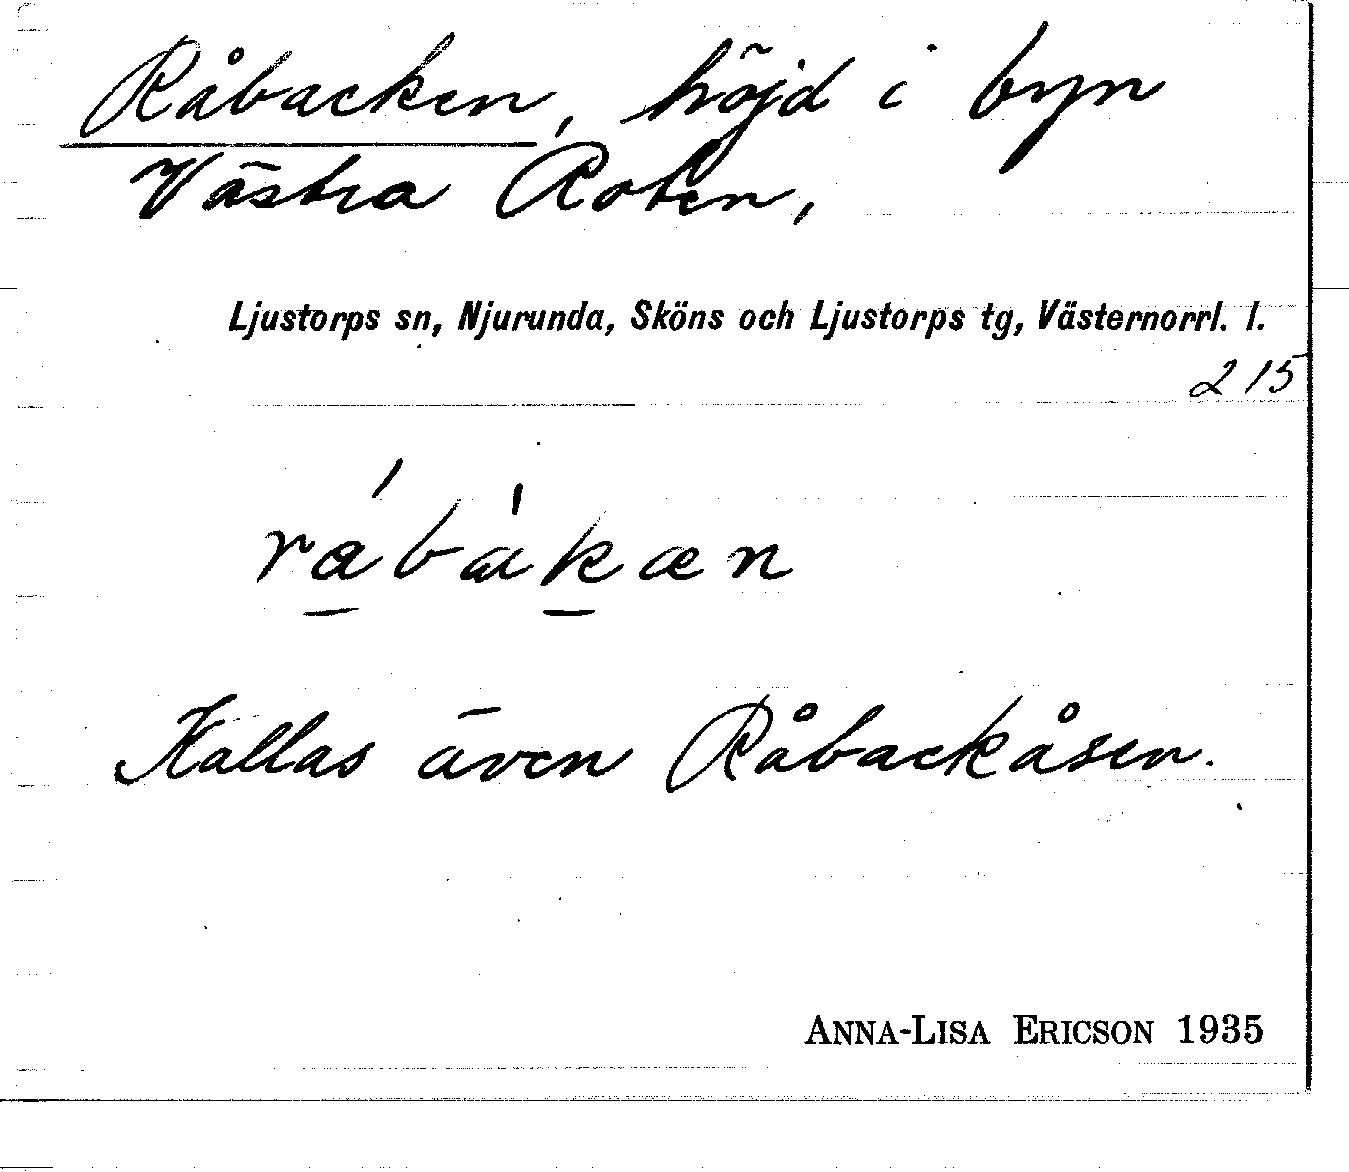 Råbacken, höjd i byn
Västra Roten,
Ljustorps sn, Njurunda, Sköns och Ljustorps tg, Västernorrl. l.
215
Kallas även Råbackåsen.
ANNA-LISA ERICSON 1935